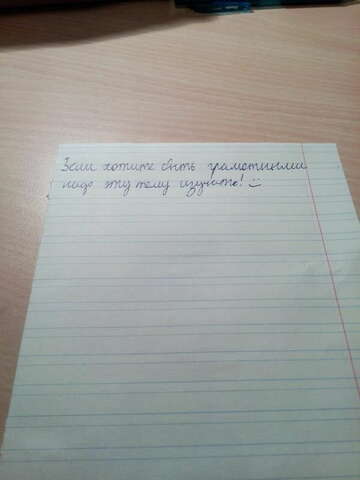 Если хотите быть грамотными
надо эту тему изучать! :)